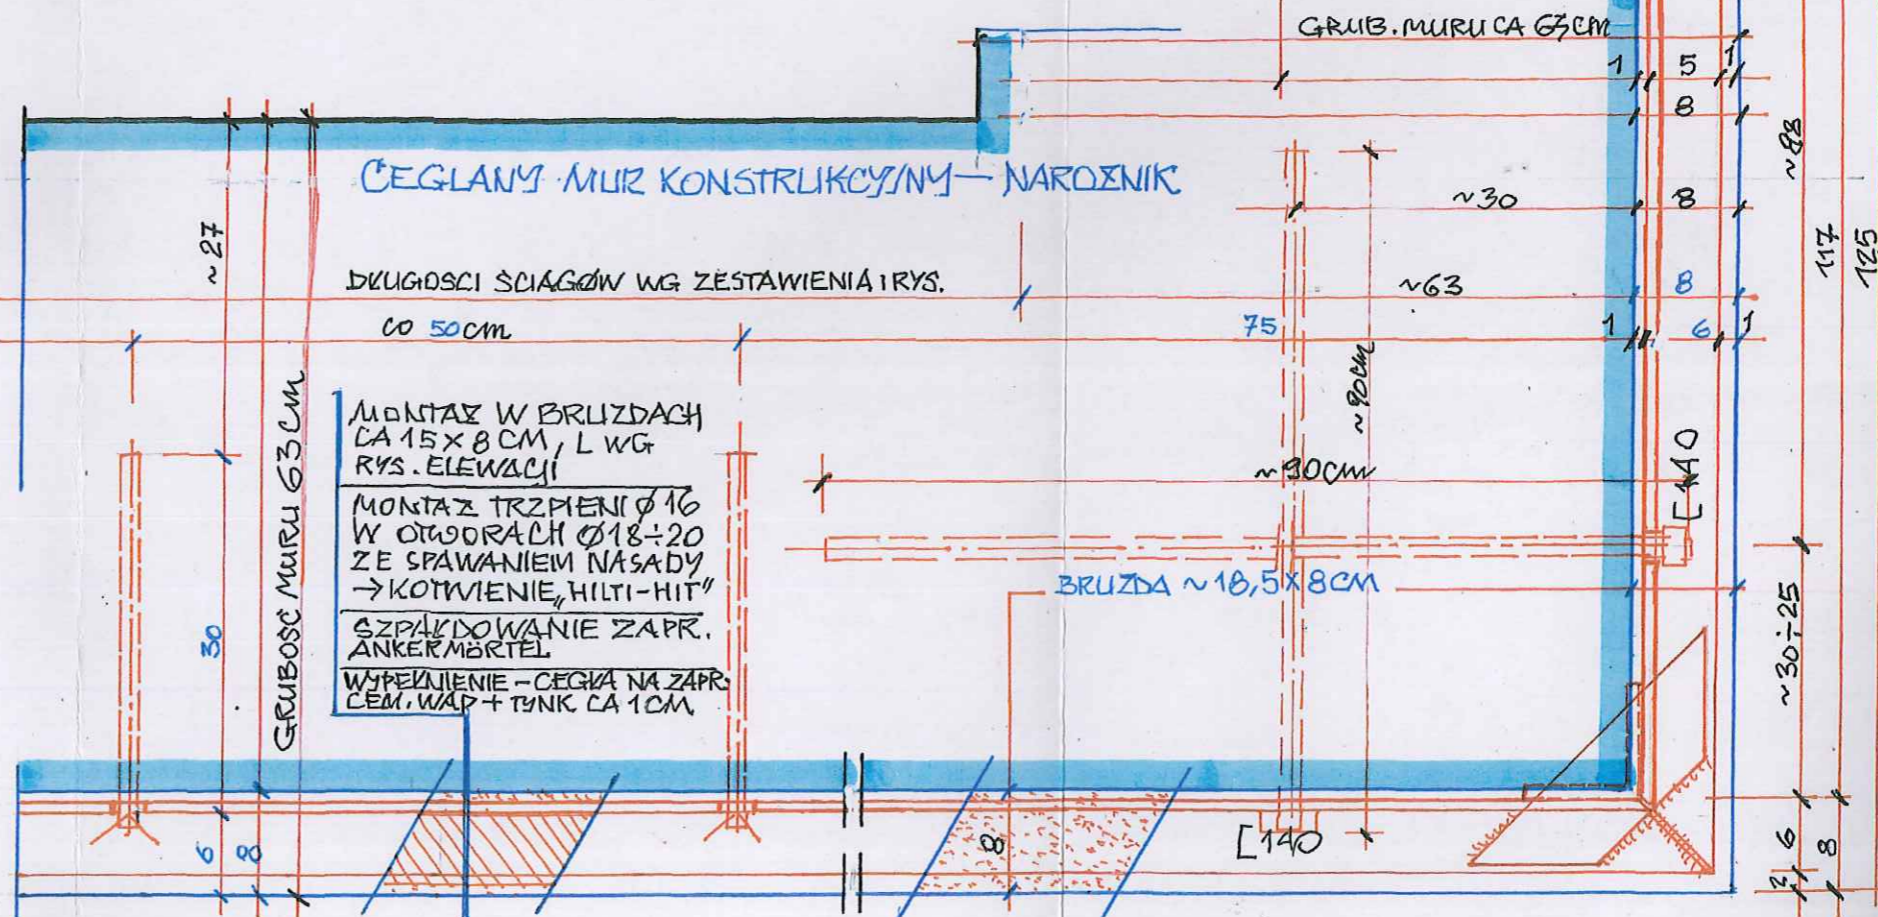 GRUB. MURU CA 63CM
1 5 1
8
~88
CEGLANY MUR KONSTRUKCYJNY — NAROŻNIK
~30 8
~27
117
125
DŁUGOŚCI ŚCIĄGÓW WG ZESTAWIENIA I RYS.
~63 8
CO 50cm
75
1 6 1
~90cm
GRUBOŚĆ MURU 63 CM
MONTAŻ W BRUZDACH
CA 15 X 8 CM, L WG
RYS. ELEWACJI
MONTAŻ TRZPIENI Ø 16
W OTWORACH Ø18÷20
ZE SPAWANIEM NASADY
→ KOTWIENIE „HILTI-HIT"
SZPAŁDOWANIE ZAPR.
ANKERMÖRTEL
WYPEŁNIENIE - CEGŁA NA ZAPR.
CEM. WAP + TYNK CA 1CM
~90cm
[140
BRUZDA ~ 18,5 X 8 CM
~30÷25
30
6 8
8
[140
6
8
2